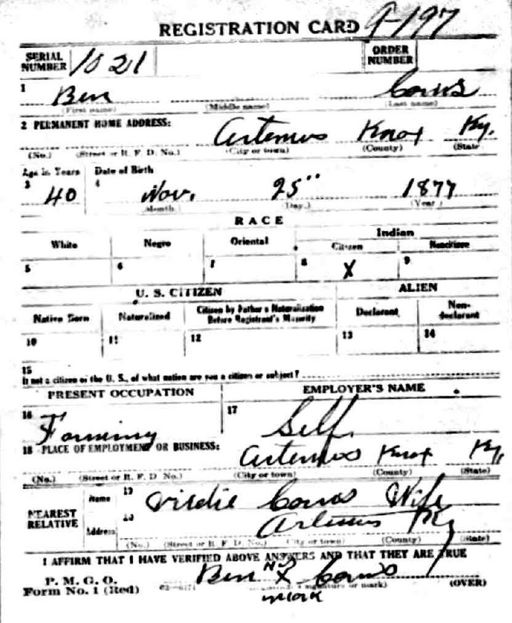 REGISTRATION CARD 9-197
SERIAL NUMBER 1021 ORDER NUMBER
1 Ben
(First name) (Middle name) (Last name)
2 PERMANENT HOME ADDRESS: Artemus Knox Ky.
(No.) (Street or R. F. D. No.) (City or town) (County) (State)
Age in Years Date of Birth
3 40 4 Nov. 25" 1877
(Month) (Day) (Year)
RACE
White Negro Oriental Indian
Citizen Noncitizen
5 6 7 8 X 9
U. S. CITIZEN ALIEN
Native Born Naturalized Citizen by Father's Naturalization Before Registrant's Majority Declarant Non-declarant
10 11 12 13 14
15
If not a citizen of the U. S., of what nation are you a citizen or subject?
PRESENT OCCUPATION EMPLOYER'S NAME
16 Farming 17 Self
18 PLACE OF EMPLOYMENT OR BUSINESS: Artemus Knox Ky,
(No.) (Street or R. F. D. No.) (City or town) (County) (State)
NEAREST RELATIVE Name 19 Wife
Address 20 Artemus Ky
(No.) (Street or R. F. D. No.) (City or town) (County) (State)
I AFFIRM THAT I HAVE VERIFIED ABOVE ANSWERS AND THAT THEY ARE TRUE
P. M. G. O.
Form No. 1 (Red) Ben X
(Registrant's signature or mark) (OVER)
mark